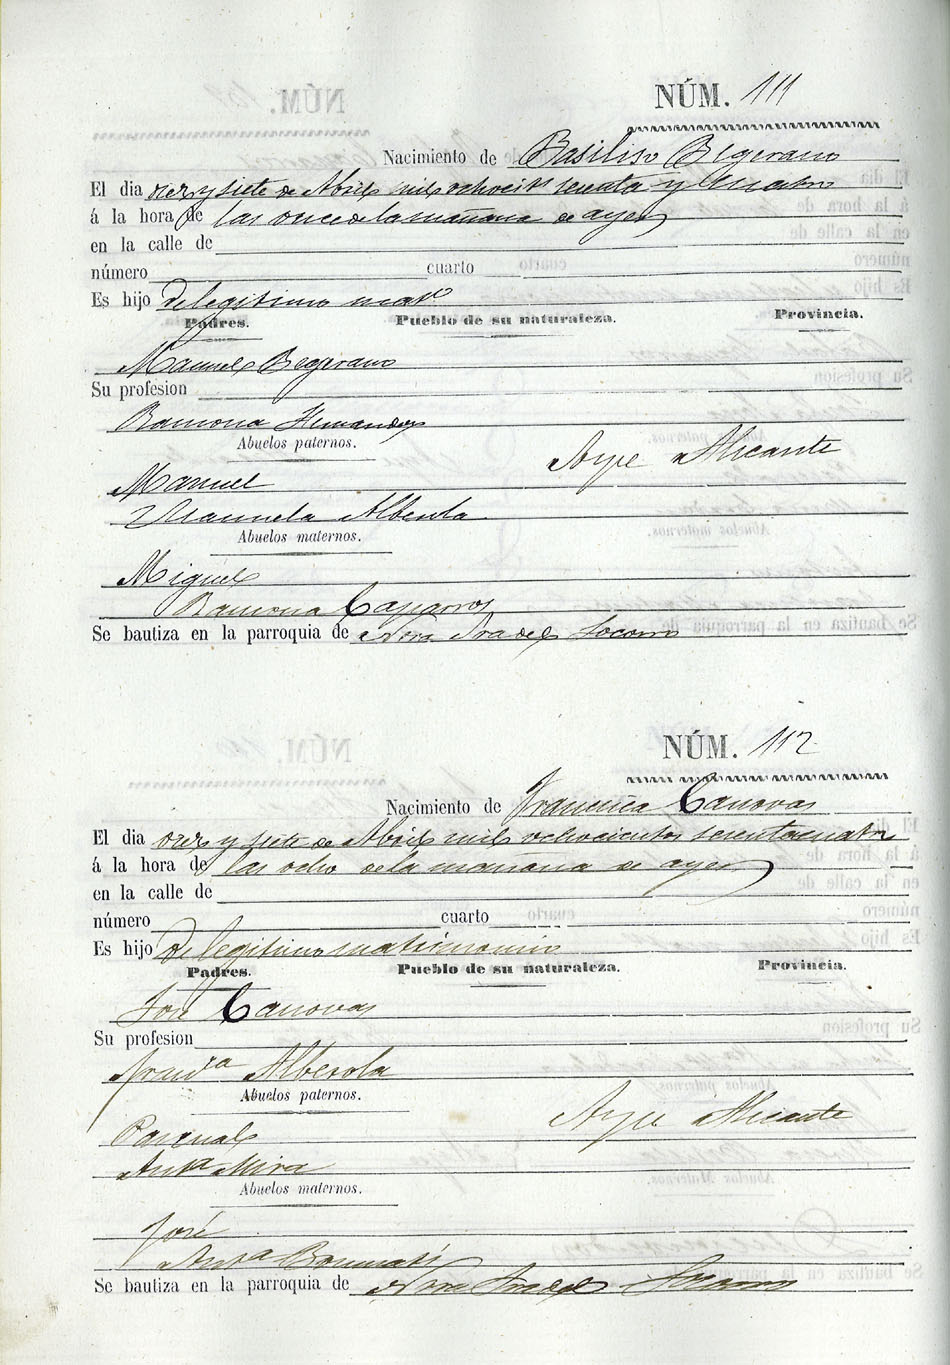 NÚM. 111
Nacimiento de Basiliso Begerano
El dia diez y siete de Abril mil ochocitˢ sesenta y cuatro
á la hora de las once de la mañana de ayer
en la calle de
número cuarto
Es hijo de legitimo matº
Padres. Pueblo de su naturaleza. Provincia.
Manuel Begerano
Su profesion
Ramona Hernandez
Abuelos paternos.
Aspe Alicante
Manuel
Manuela Alberola
Abuelos maternos.
Miguel
Ramona Caparros
Se bautiza en la parroquia de Ntra Sra del Socorro
NÚM. 112
Nacimiento de Francisca Canovas
El dia diez y siete de Abril mil ochocientos sesentacuatro
á la hora de las ocho de la mañana de ayer
en la calle de
número cuarto
Es hijo de legitimo matrimonio
Padres. Pueblo de su naturaleza. Provincia.
José Canovas
Su profesion
Francᶜᵃ Alberola
Abuelos paternos.
Aspe Alicante
Pascual
Antª Mira
Abuelos maternos.
José
Antª Bonmatí
Se bautiza en la parroquia de Ntra Sra del Socorro